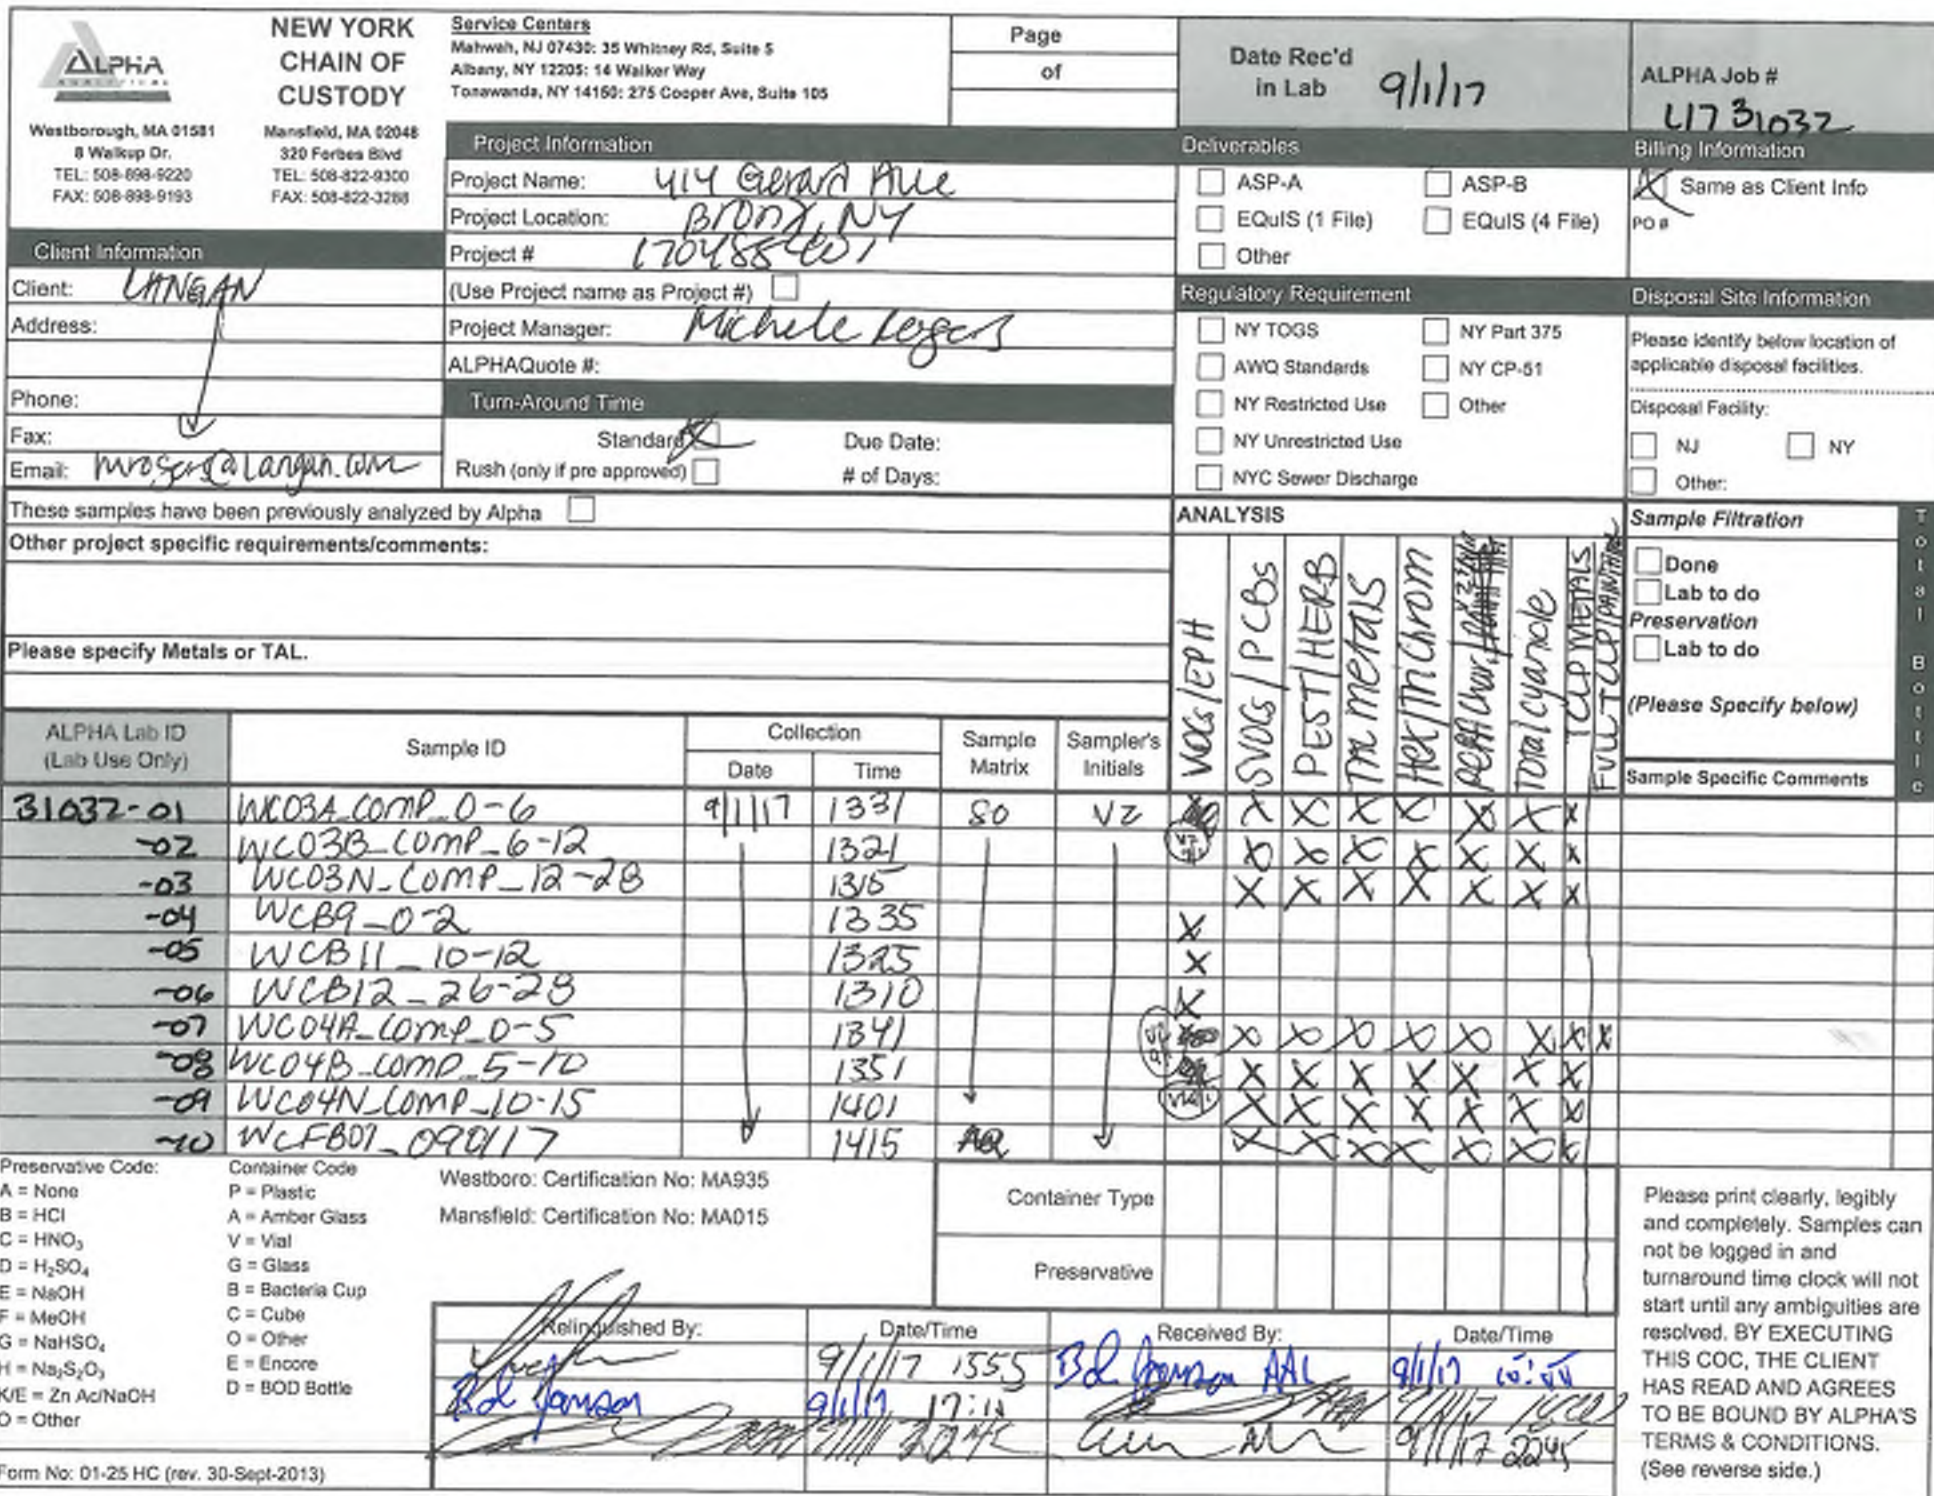 ALPHA
ANALYTICAL
NEW YORK
CHAIN OF
CUSTODY
Westborough, MA 01581
8 Walkup Dr.
TEL: 508-898-9220
FAX: 508-898-9193
Mansfield, MA 02048
320 Forbes Blvd
TEL: 508-822-9300
FAX: 508-822-3288
Service Centers
Mahwah, NJ 07430: 35 Whitney Rd, Suite 5
Albany, NY 12205: 14 Walker Way
Tonawanda, NY 14150: 275 Cooper Ave, Suite 105
Page
of
Date Rec'd
in Lab 9/1/17
ALPHA Job #
L1731032
Project Information
Project Name: 414 Gerard Ave
Project Location: Bronx, NY
Project #
(Use Project name as Project #)
Project Manager: Michele Rogers
ALPHAQuote #:
Client Information
Client: LANGAN
Address:
Phone:
Fax:
Email: mrogers@Langan.com
Turn-Around Time
Standard Due Date:
Rush (only if pre approved) # of Days:
Deliverables
ASP-A ASP-B
EQuIS (1 File) EQuIS (4 File)
Other
Regulatory Requirement
NY TOGS NY Part 375
AWQ Standards NY CP-51
NY Restricted Use Other
NY Unrestricted Use
NYC Sewer Discharge
Billing Information
X Same as Client Info
PO #
Disposal Site Information
Please identify below location of
applicable disposal facilities.
Disposal Facility:
NJ NY
Other:
These samples have been previously analyzed by Alpha
Other project specific requirements/comments:
Please specify Metals or TAL.
ANALYSIS
VOCs/EPH
SVOCs/PCBs
PEST/HERB
TAL Metals
Hex/Trichrom
RCRA Char,
Total Cyanide
TCLP METALS
FULL TCLP
Sample Filtration
Done
Lab to do
Preservation
Lab to do
(Please Specify below)
Total Bottle
ALPHA Lab ID
(Lab Use Only)
Sample ID
Collection
Date Time
Sample
Matrix
Sampler's
Initials
Sample Specific Comments
31032-01 WC03A_COMP_0-6 9/1/17 1331 SO VZ X X X X X X X
-02 WC03B_COMP_6-12 1321 X X X X X X X
-03 WC03N_COMP_12-28 1315 X X X X X X X
-04 WCB9_0-2 1335 X
-05 WCB11_10-12 1325 X
-06 WCB12_26-28 1310 X
-07 WC04A_COMP_0-5 1341 X X X X X X X X
-08 WC04B_COMP_5-10 1351 X X X X X X X
-09 WC04N_COMP_10-15 1401 X X X X X X X
-10 WCFB01_090117 1415 AQ X X X X X X X
Preservative Code:
A = None
B = HCl
C = HNO₃
D = H₂SO₄
E = NaOH
F = MeOH
G = NaHSO₄
H = Na₂S₂O₃
K/E = Zn Ac/NaOH
O = Other
Container Code
P = Plastic
A = Amber Glass
V = Vial
G = Glass
B = Bacteria Cup
C = Cube
O = Other
E = Encore
D = BOD Bottle
Westboro: Certification No: MA935
Mansfield: Certification No: MA015
Container Type
Preservative
Relinquished By: Date/Time Received By: Date/Time
9/1/17 1555 AAL 9/1/17
9/1/17
9/1/17 2245
Please print clearly, legibly
and completely. Samples can
not be logged in and
turnaround time clock will not
start until any ambiguities are
resolved. BY EXECUTING
THIS COC, THE CLIENT
HAS READ AND AGREES
TO BE BOUND BY ALPHA'S
TERMS & CONDITIONS.
(See reverse side.)
Form No: 01-25 HC (rev. 30-Sept-2013)